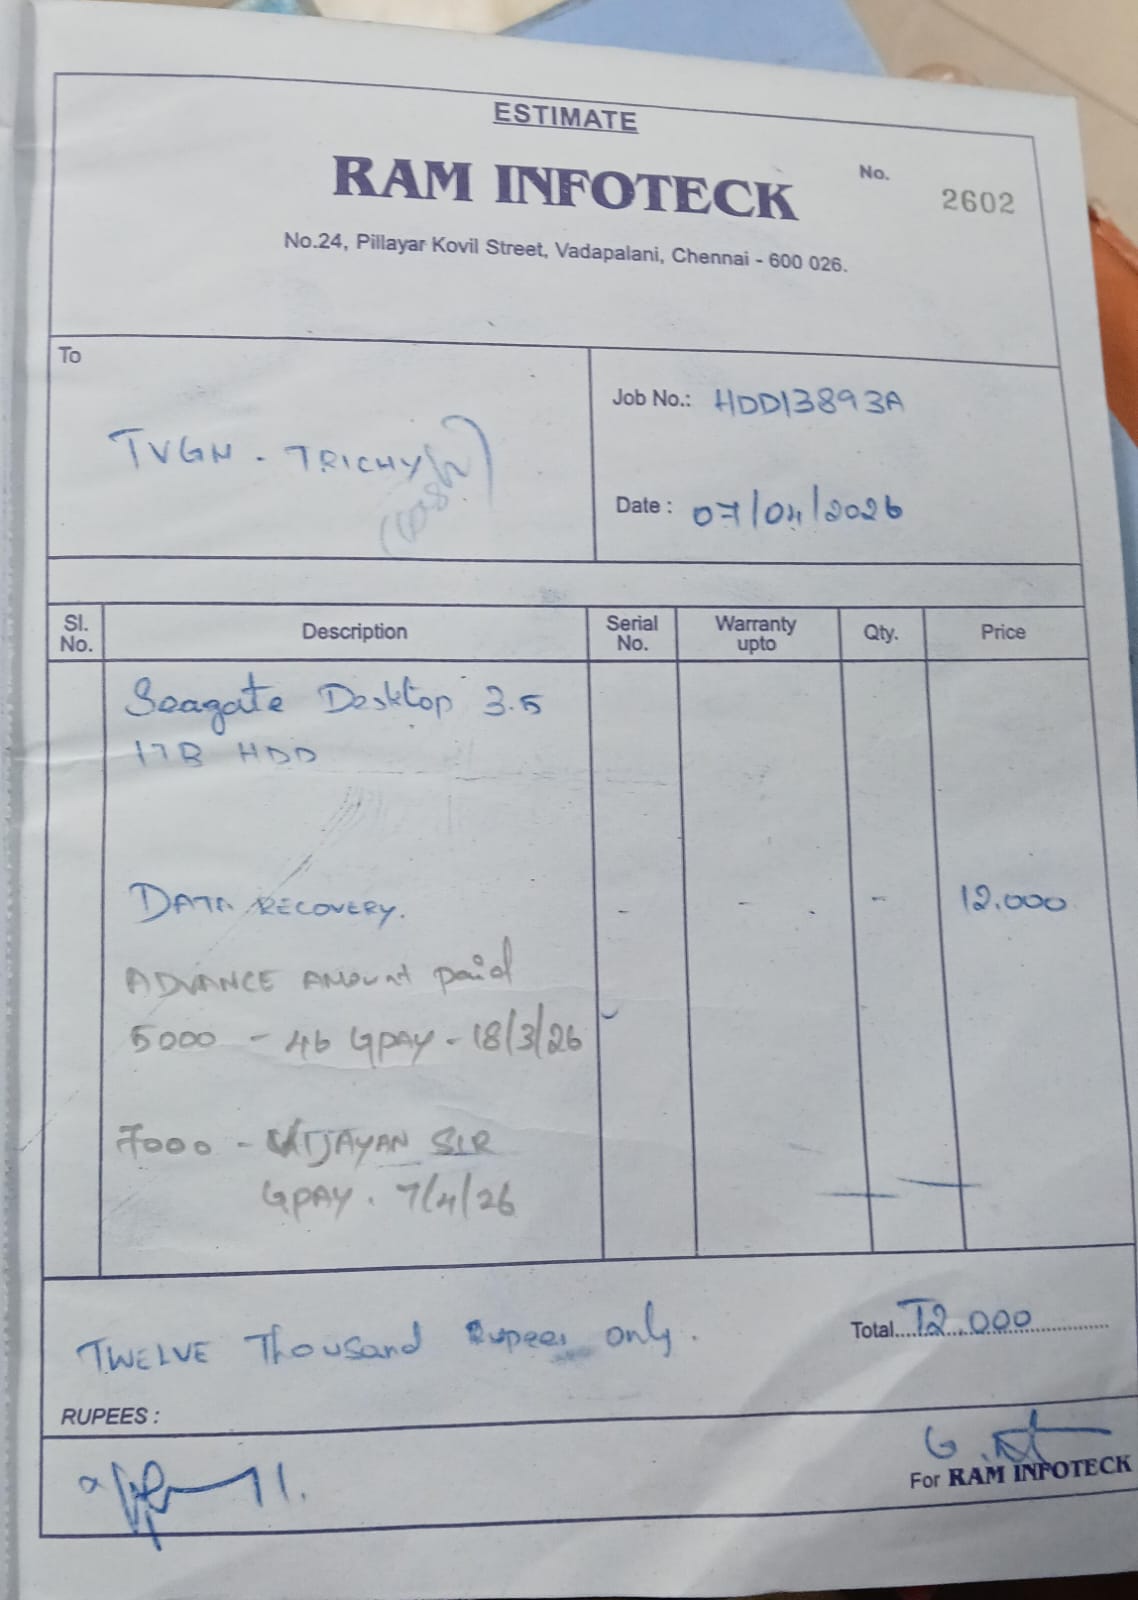 ESTIMATE
RAM INFOTECK
No. 2602
No.24, Pillayar Kovil Street, Vadapalani, Chennai - 600 026.
To
TVGN - TRICHY
(Cash)
Job No.: HDD13893A
Date : 07/04/2026
Sl. No. Description Serial No. Warranty upto Qty. Price
Seagate Desktop 3.5
1TB HDD
DATA RECOVERY. - - - 12.000
ADVANCE AMOUNT paid
5000 - GPAY - 18/3/26
7000 - VIJAYAN SIR
GPAY. 7/4/26
TWELVE Thousand Rupees only.
Total 12.000
RUPEES :
For RAM INFOTECK